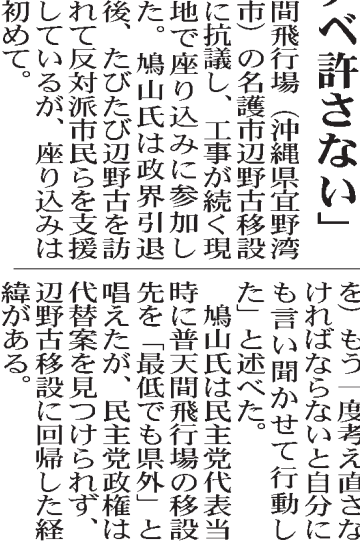 べ許さない」
間飛行場（沖縄県宜野湾
市）の名護市辺野古移設
に抗議し、工事が続く現
地で座り込みに参加し
た。鳩山氏は政界引退
後、たびたび辺野古を訪
れて反対派市民らを支援
しているが、座り込みは
初めて。
を）もう一度考え直さな
ければならないと自分に
も言い聞かせて行動し
た」と述べた。
鳩山氏は民主党代表当
時に普天間飛行場の移設
先を「最低でも県外」と
唱えたが、民主党政権は
代替案を見つけられず、
辺野古移設に回帰した経
緯がある。